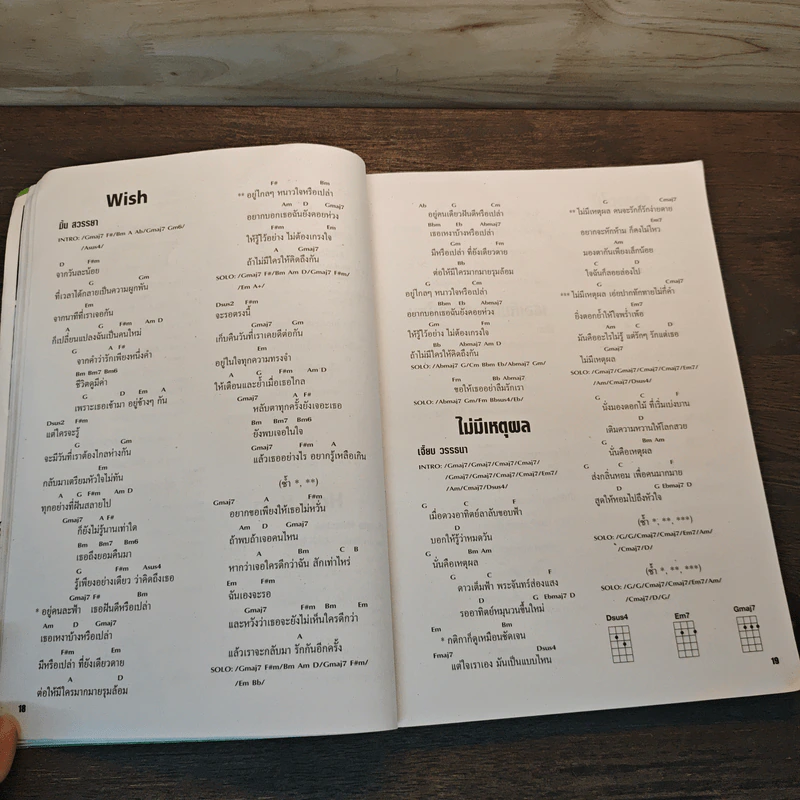 Wish
มิ้น สวรรยา
INTRO: /Gmaj7 F#/Bm A Ab/Gmaj7 Gm6/
/Asus4/
D F#m
จากวันละน้อย
G Gm
ที่เวลาได้กลายเป็นความผูกพัน
Em
จากนาทีที่เราเจอกัน
A G F#m Am D
ก็เปลี่ยนแปลงฉันเป็นคนใหม่
G A F#
จากคำว่ารักเพียงหนึ่งคำ
Bm Bm7 Bm6
ชีวิตดูมีค่า
G D Em A
เพราะเธอเข้ามา อยู่ข้างๆ กัน
Dsus2 F#m
แต่ใครจะรู้
G Gm
จะมีวันที่เราต้องไกลห่างกัน
Em
กลับมาเตรียมหัวใจไม่ทัน
A G F#m Am D
ทุกอย่างที่ฝันสลายไป
Gmaj7 A F#
ก็ยังไม่รู้นานเท่าใด
Bm Bm7 Bm6
เธอถึงยอมคืนมา
G F#m Asus4
รู้เพียงอย่างเดียว ว่าคิดถึงเธอ
Gmaj7 F# Bm
* อยู่คนละฟ้า เธอฝันดีหรือเปล่า
Am D Gmaj7
เธอเหงาบ้างหรือเปล่า
F#m Em
มีหรือเปล่า ที่ยังเดียวดาย
A D
ต่อให้มีใครมากมายรุมล้อม
18
F# Bm
** อยู่ไกลๆ หนาวใจหรือเปล่า
Am D Gmaj7
อยากบอกเธอฉันยังคอยห่วง
F#m Em
ให้รู้ไว้อย่าง ไม่ต้องเกรงใจ
A Gmaj7
ถ้าไม่มีใครให้คิดถึงกัน
SOLO: /Gmaj7 F#/Bm Am D/Gmaj7 F#m/
/Em A+/
Dsus2 F#m
จะรอตรงนี้
Gmaj7 Gm
เก็บคืนวันที่เราเคยดีต่อกัน
Em
อยู่ในใจทุกความทรงจำ
A G F#m Am D
ให้เตือนและย้ำเมื่อเธอไกล
Gmaj7 A F#
หลับตาทุกครั้งยังเจอะเธอ
Bm Bm7 Bm6
ยังพบเจอในใจ
Gmaj7 F#m A
แล้วเธออย่างไร อยากรู้เหลือเกิน
(ซ้ำ *, **)
Gmaj7 A F#m
อยากขอเพียงให้เธอไม่หวั่น
Am D Gmaj7
ถ้าพบล้าเจอคนไหน
A Bm C B
หากว่าเจอใครดีกว่าฉัน สักเท่าไหร่
Em F#m
ฉันเองจะรอ
Gmaj7 F#m Bm Em
และหวังว่าเธอจะยังไม่เห็นใครดีกว่า
A Gmaj7
แล้วเราจะกลับมา รักกันอีกครั้ง
SOLO: /Gmaj7 F#m/Bm Am D/Gmaj7 F#m/
/Em Bb/
Ab G Cm
อยู่คนเดียวฝันดีหรือเปล่า
Bbm Eb Abmaj7
เธอเหงาบ้างหรือเปล่า
Gm Fm
มีหรือเปล่า ที่ยังเดียวดาย
Bb
ต่อให้มีใครมากมายรุมล้อม
G Cm
อยู่ไกลๆ หนาวใจหรือเปล่า
Bbm Eb Abmaj7
อยากบอกเธอฉันยังคอยห่วง
Gm Fm
ให้รู้ไว้อย่าง ไม่ต้องเกรงใจ
Bb Abmaj7 Am D
ถ้าไม่มีใครให้คิดถึงกัน
SOLO: /Abmaj7 G/Cm Bbm Eb/Abmaj7 Gm/
Fm Bb Abmaj7
ขอให้เธออย่าลืมรักเรา
SOLO: /Abmaj7 Gm/Fm Bbsus4/Eb/
ไม่มีเหตุผล
เจี๊ยบ วรรธนา
INTRO: /Gmaj7/Gmaj7/Cmaj7/Cmaj7/
/Gmaj7/Gmaj7/Cmaj7/Cmaj7/Em7/
/Am/Cmaj7/Dsus4/
G C F
เมื่อดวงอาทิตย์ลาลับขอบฟ้า
D
บอกให้รู้ว่าหมดวัน
G Bm Am
นั่นคือเหตุผล
G C F
ดาวเต็มฟ้า พระจันทร์ส่องแสง
D G Ebmaj7 D
รออาทิตย์หมุนวนขึ้นใหม่
Em Bm
* กติกาก็ดูเหมือนชัดเจน
Fmaj7 Dsus4
แต่ใจเราเอง มันเป็นแบบไหน
G Cmaj7
** ไม่มีเหตุผล คนจะรักก็รักง่ายดาย
Em7
อยากจะหักห้าม ก็คงไม่ไหว
Am
มองตากันเพียงเล็กน้อย
C D
ใจฉันก็ลอยล่องไป
G Cmaj7
*** ไม่มีเหตุผล เอ่ยปากทักทายไม่กี่คำ
Em7
ยิ่งตอกย้ำให้ใจพร่ำเพ้อ
Am C D
มันคืออะไรไม่รู้ แต่รักๆ รักแต่เธอ
Gmaj7
ไม่มีเหตุผล
SOLO: /Gmaj7/Gmaj7/Cmaj7/Cmaj7/Em7/
/Am/Cmaj7/Dsus4/
G C F
นั่งมองดอกไม้ ที่เริ่มเบ่งบาน
D
เติมความหวานให้โลกสวย
G Bm Am
นั่นคือเหตุผล
G C F
ส่งกลิ่นหอม เพื่อคนมากมาย
D G Ebmaj7 D
สูดให้หอมไปถึงหัวใจ
(ซ้ำ *, **, ***)
SOLO: /G/G/Cmaj7/Cmaj7/Em7/Am/
/Cmaj7/D/
(ซ้ำ *, **, ***)
SOLO: /G/G/Cmaj7/Cmaj7/Em7/Am/
/Cmaj7/D/G/
Dsus4 Em7 Gmaj7
19